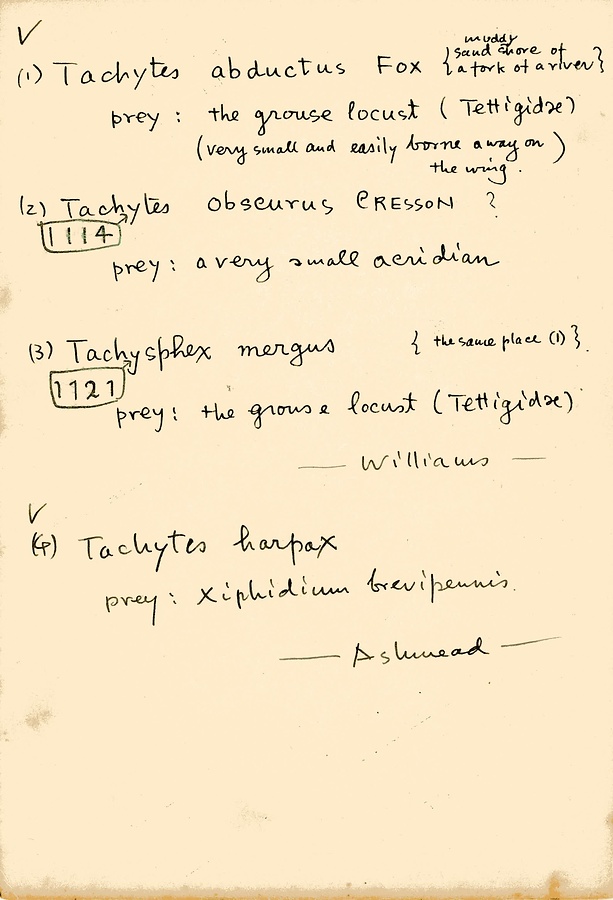 V
muddy
(1) Tachytes abductus Fox { sand shore of
a fork of a river }
prey : the grouse locust ( Tettigidæ )
(very small and easily borne away on )
the wing .
(2) Tachytes obscurus CRESSON ?
1114
prey : a very small acridian
(3) Tachysphex mergus { the same place (1) }.
1121
prey : the grouse locust ( Tettigidæ )
— Williams —
V
(4) Tachytes harpax
prey : Xiphidium brevipennis.
— Ashmead —